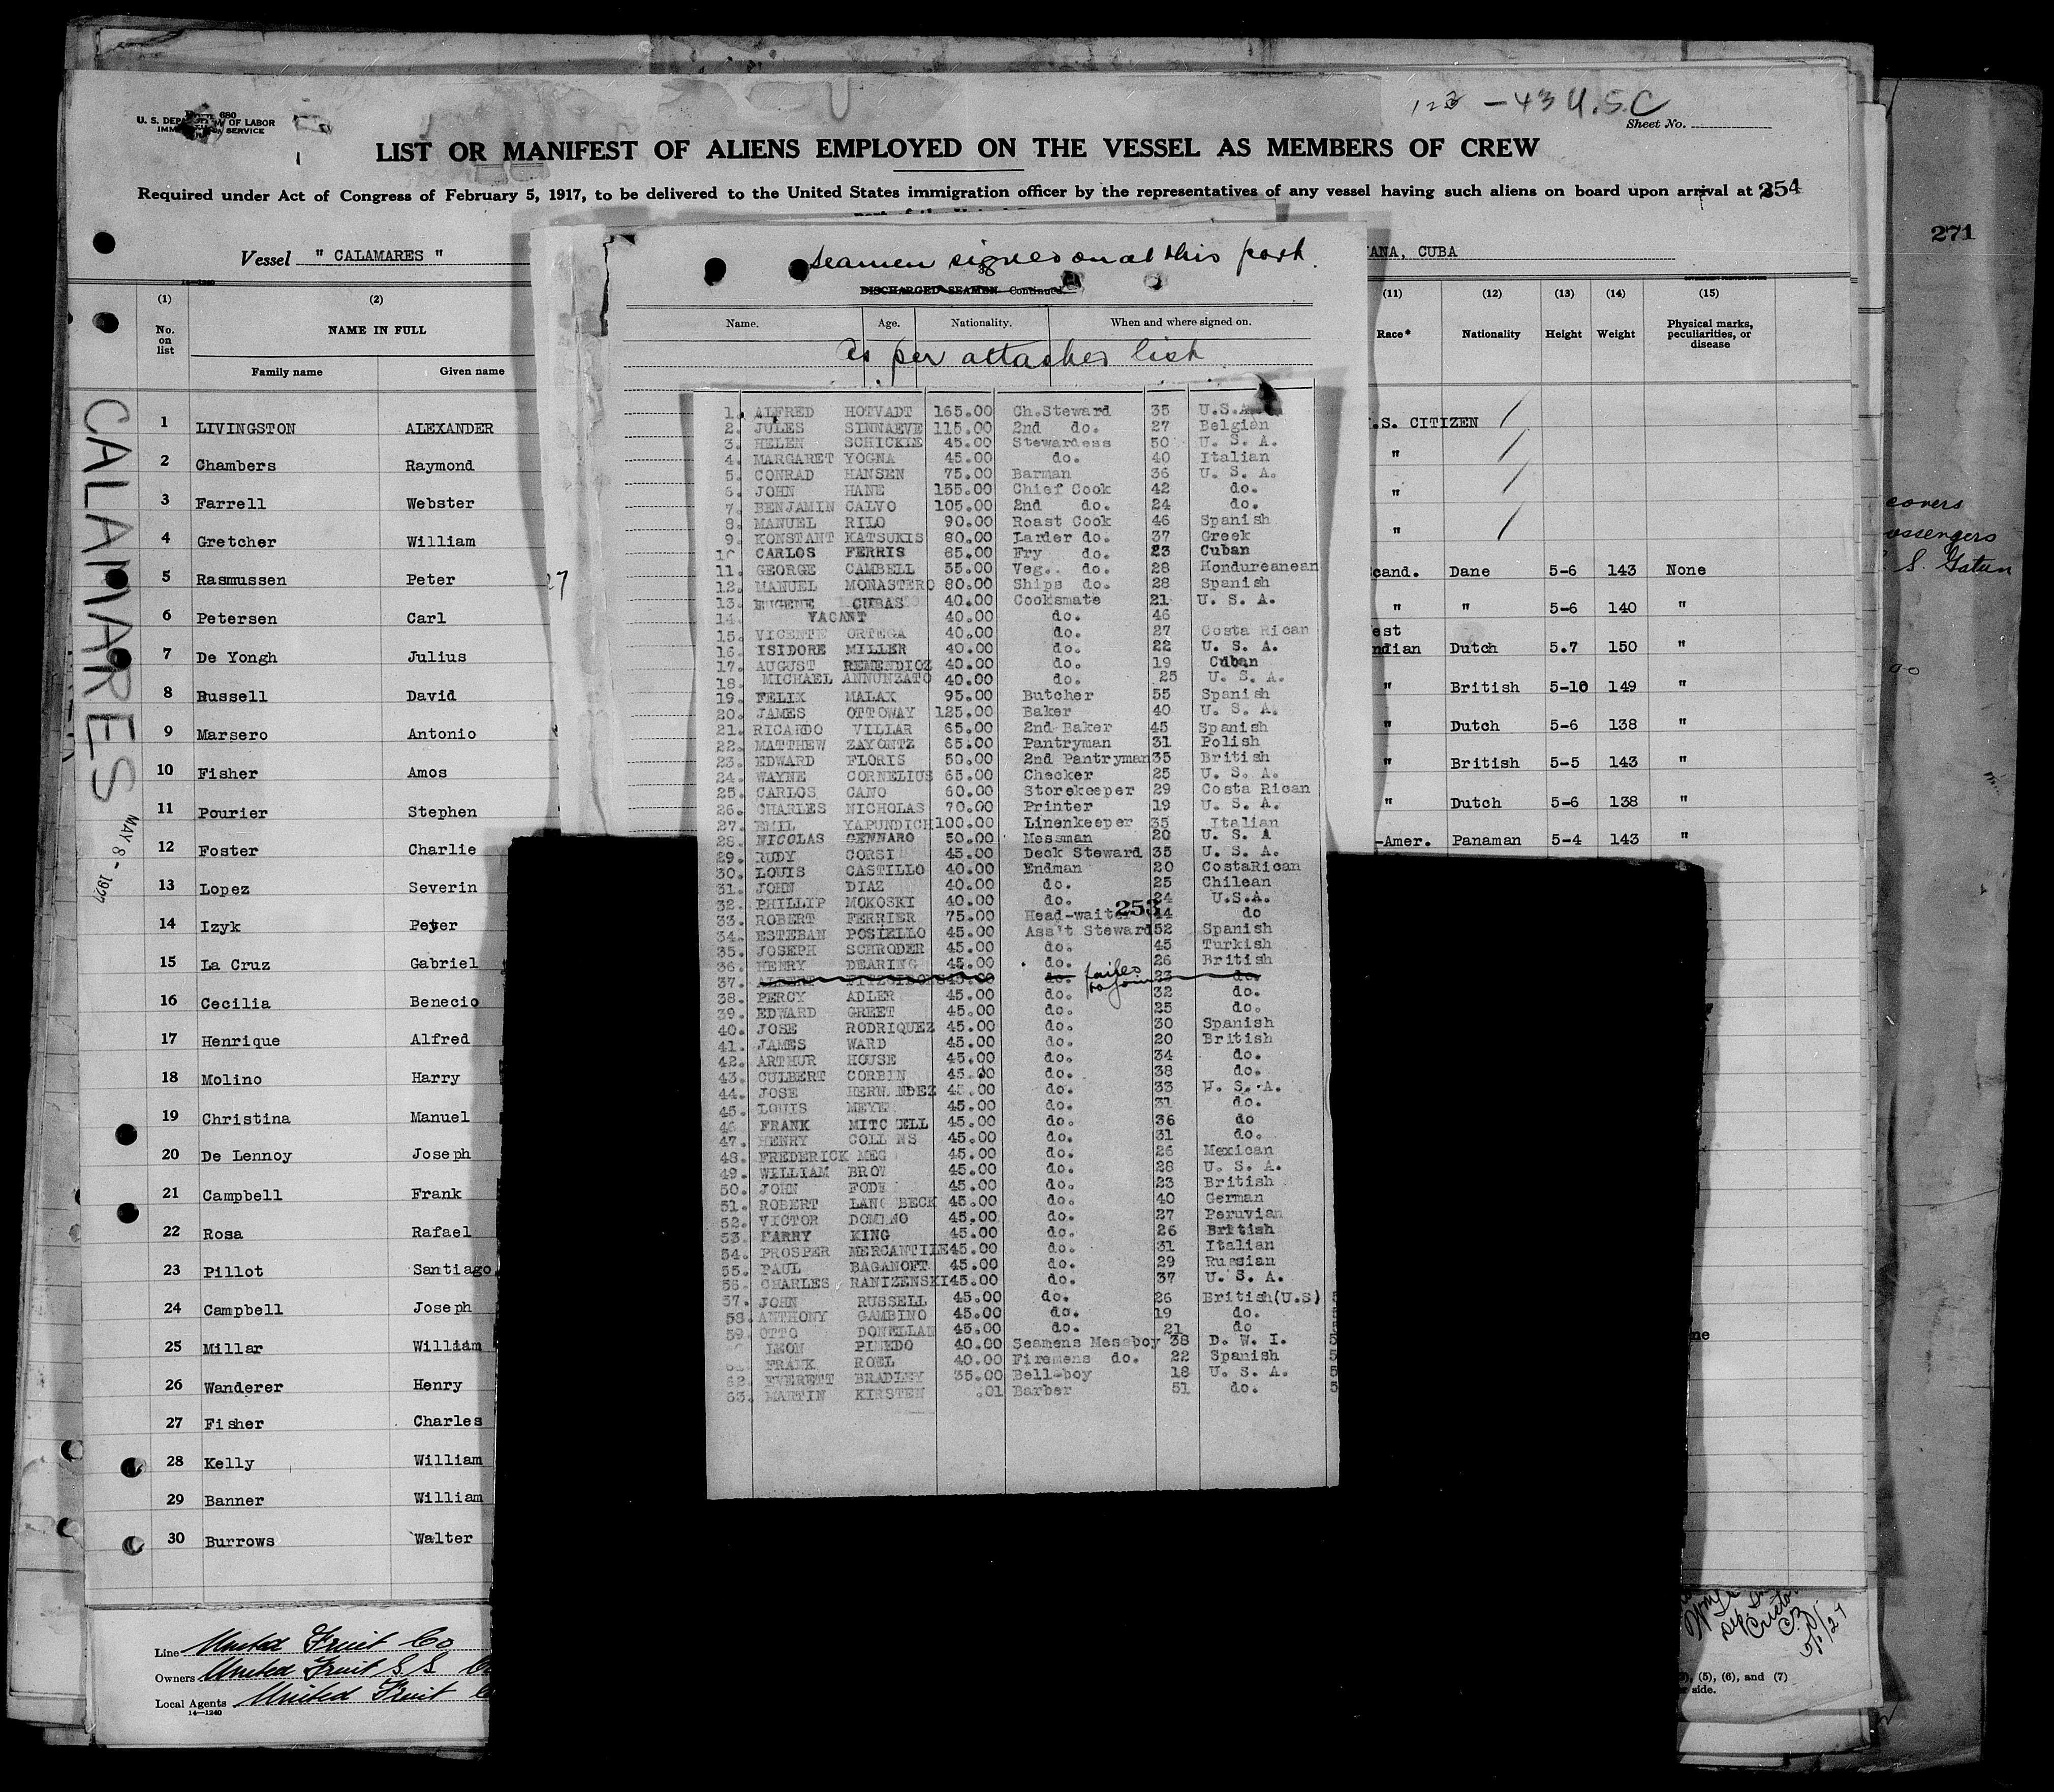 680
U. S. DEPARTMENT OF LABOR
IMMIGRATION SERVICE
123 - 43 U.S.C
Sheet No.
LIST OR MANIFEST OF ALIENS EMPLOYED ON THE VESSEL AS MEMBERS OF CREW
Required under Act of Congress of February 5, 1917, to be delivered to the United States immigration officer by the representatives of any vessel having such aliens on board upon arrival at 254
271
Vessel " CALAMARES "
ANA, CUBA
14-1240
(1) (2)
No. on list NAME IN FULL
Family name Given name
CALAMARES
MAY 8 - 1927
1 LIVINGSTON ALEXANDER
2 Chambers Raymond
3 Farrell Webster
4 Gretcher William
5 Rasmussen Peter
6 Petersen Carl
7 De Yongh Julius
8 Russell David
9 Marsero Antonio
10 Fisher Amos
11 Pourier Stephen
12 Foster Charlie
13 Lopez Severin
14 Izyk Peter
15 La Cruz Gabriel
16 Cecilia Benecio
17 Henrique Alfred
18 Molino Harry
19 Christina Manuel
20 De Lennoy Joseph
21 Campbell Frank
22 Rosa Rafael
23 Pillot Santiago
24 Campbell Joseph
25 Millar William
26 Wanderer Henry
27 Fisher Charles
28 Kelly William
29 Banner William
30 Burrows Walter
Line United Fruit Co
Owners United Fruit S S Co
Local Agents United Fruit
14-1240
Seamen signed on at this port.
DISCHARGED SEAMEN Continued.
Name. Age. Nationality. When and where signed on.
As per attached list
1. ALFRED HOTVADT 165.00 Ch.Steward 35 U.S.A.
2. JULES SINNAEVE 115.00 2nd do. 27 Belgian
3. HELEN SCHICKIE 45.00 Stewardess 50 U. S. A.
4. MARGARET YOGNA 45.00 do. 40 Italian
5. CONRAD HANSEN 75.00 Barman 36 U. S. A.
6. JOHN HANE 155.00 Chief Cook 42 do.
7. BENJAMIN CALVO 105.00 2nd do. 24 do.
8. MANUEL RILO 90.00 Roast Cook 46 Spanish
9. KONSTANT KATSUKIS 80.00 Larder do. 37 Greek
10 CARLOS FERRIS 85.00 Fry do. 23 Cuban
11. GEORGE CAMBELL 55.00 Veg.. do. 28 Hondurean
12. MANUEL MONASTERO 80.00 Ships do. 28 Spanish
13. EUGENE CUBAS 40.00 Cooksmate 21 U. S. A.
14. VACANT 40.00 do. 46
15. VICENTE ORTEGA 40.00 do. 27 Costa Rican
16. ISIDORE MILLER 40.00 do. 22 U. S. A.
17. AUGUST REMENDIOZ 40.00 do. 19 Cuban
18. MICHAEL ANNUNZATO 40.00 do. 25 U. S. A.
19. FELIX MALAX 95.00 Butcher 55 Spanish
20. JAMES OTTOWAY 125.00 Baker 40 U. S. A.
21. RICARDO VILLAR 65.00 2nd Baker 45 Spanish
22. MATTHEW ZAYONTZ 65.00 Pantryman 31 Polish
23. EDWARD FLORIS 50.00 2nd Pantryman 35 British
24. WAYNE CORNELIUS 65.00 Checker 25 U. S. A.
25. CARLOS CANO 60.00 Storekeeper 29 Costa Rican
26. CHARLES NICHOLAS 70.00 Printer 19 U. S. A.
27. EMIL YAPUNDICH 100.00 Linenkeeper 35 Italian
28. NICOLAS GENNARO 50.00 Messman 20 U. S. A
29. RUDY CORSI 45.00 Deck Steward 35 U. S. A.
30. LOUIS CASTILLO 40.00 Endman 20 CostaRican
31. JOHN DIAZ 40.00 do. 25 Chilean
32. PHILLIP MOKOSKI 40.00 do. 24 U.S.A.
253
33. ROBERT FERRIER 75.00 Head-waiter 44 do
34. ESTEBAN POSIELLO 45.00 Ass't Steward 52 Spanish
35. JOSEPH SCHRODER 45.00 do. 45 Turkish
36. HENRY DEARING 45.00 do. 26 British
37. ALBERT FITZGIBONS 45.00 do. failed to join 23 do.
38. PERCY ADLER 45.00 do. 32 do.
39. EDWARD GREET 45.00 do. 25 do.
40. JOSE RODRIQUEZ 45.00 do. 30 Spanish
41. JAMES WARD 45.00 do. 20 British
42. ARTHUR HOUSE 45.00 do. 34 do.
43. CULBERT CORBIN 45.00 do. 38 do.
44. JOSE HERNANDEZ 45.00 do. 33 U. S. A.
45. LOUIS MEYE 45.00 do. 31 do.
46 FRANK MITCHELL 45.00 do. 36 do
47. HENRY COLLINS 45.00 do. 31 do.
48. FREDERICK MEG 45.00 do. 26 Mexican
49. WILLIAM BROW 45.00 do. 28 U. S. A.
50. JOHN FODE 45.00 do. 23 British
51. ROBERT LANG BECK 45.00 do. 40 German
52. VICTOR DOMINO 45.00 do. 27 Peruvian
53. HARRY KING 45.00 do. 26 British
54. PROSPER MERCANTILE 45.00 do. 31 Italian
55. PAUL BAGANOFT 45.00 do. 29 Russian
56. CHARLES RANIZENSKI 45.00 do. 37 U. S. A.
57. JOHN RUSSELL 45.00 do. 26 British(U.S) 5
58. ANTHONY GAMBINO 45.00 do. 19 do.
59. OTTO DONELLAN 45.00 do. 21 do
LEON PINEDO 40.00 Seamens Messboy 38 D. W. I. 5
FRANK ROEL 40.00 Firemens do. 22 Spanish 5
62. EVERETT BRADLEY 35.00 Bell-boy 18 U. S. A. 5
63. MARTIN KIRSTEN .01 Barber 51 do. 5
(11) (12) (13) (14) (15)
Race* Nationality Height Weight Physical marks, peculiarities, or disease
.S. CITIZEN
"
"
"
cand. Dane 5-6 143 None
" " 5-6 140 "
est
ndian Dutch 5.7 150 "
" British 5-10 149 "
" Dutch 5-6 138 "
" British 5-5 143 "
" Dutch 5-6 138 "
-Amer. Panaman 5-4 143 "
27
covers
assengers
S. Gatun
ne
(5), (6), and (7)
side.